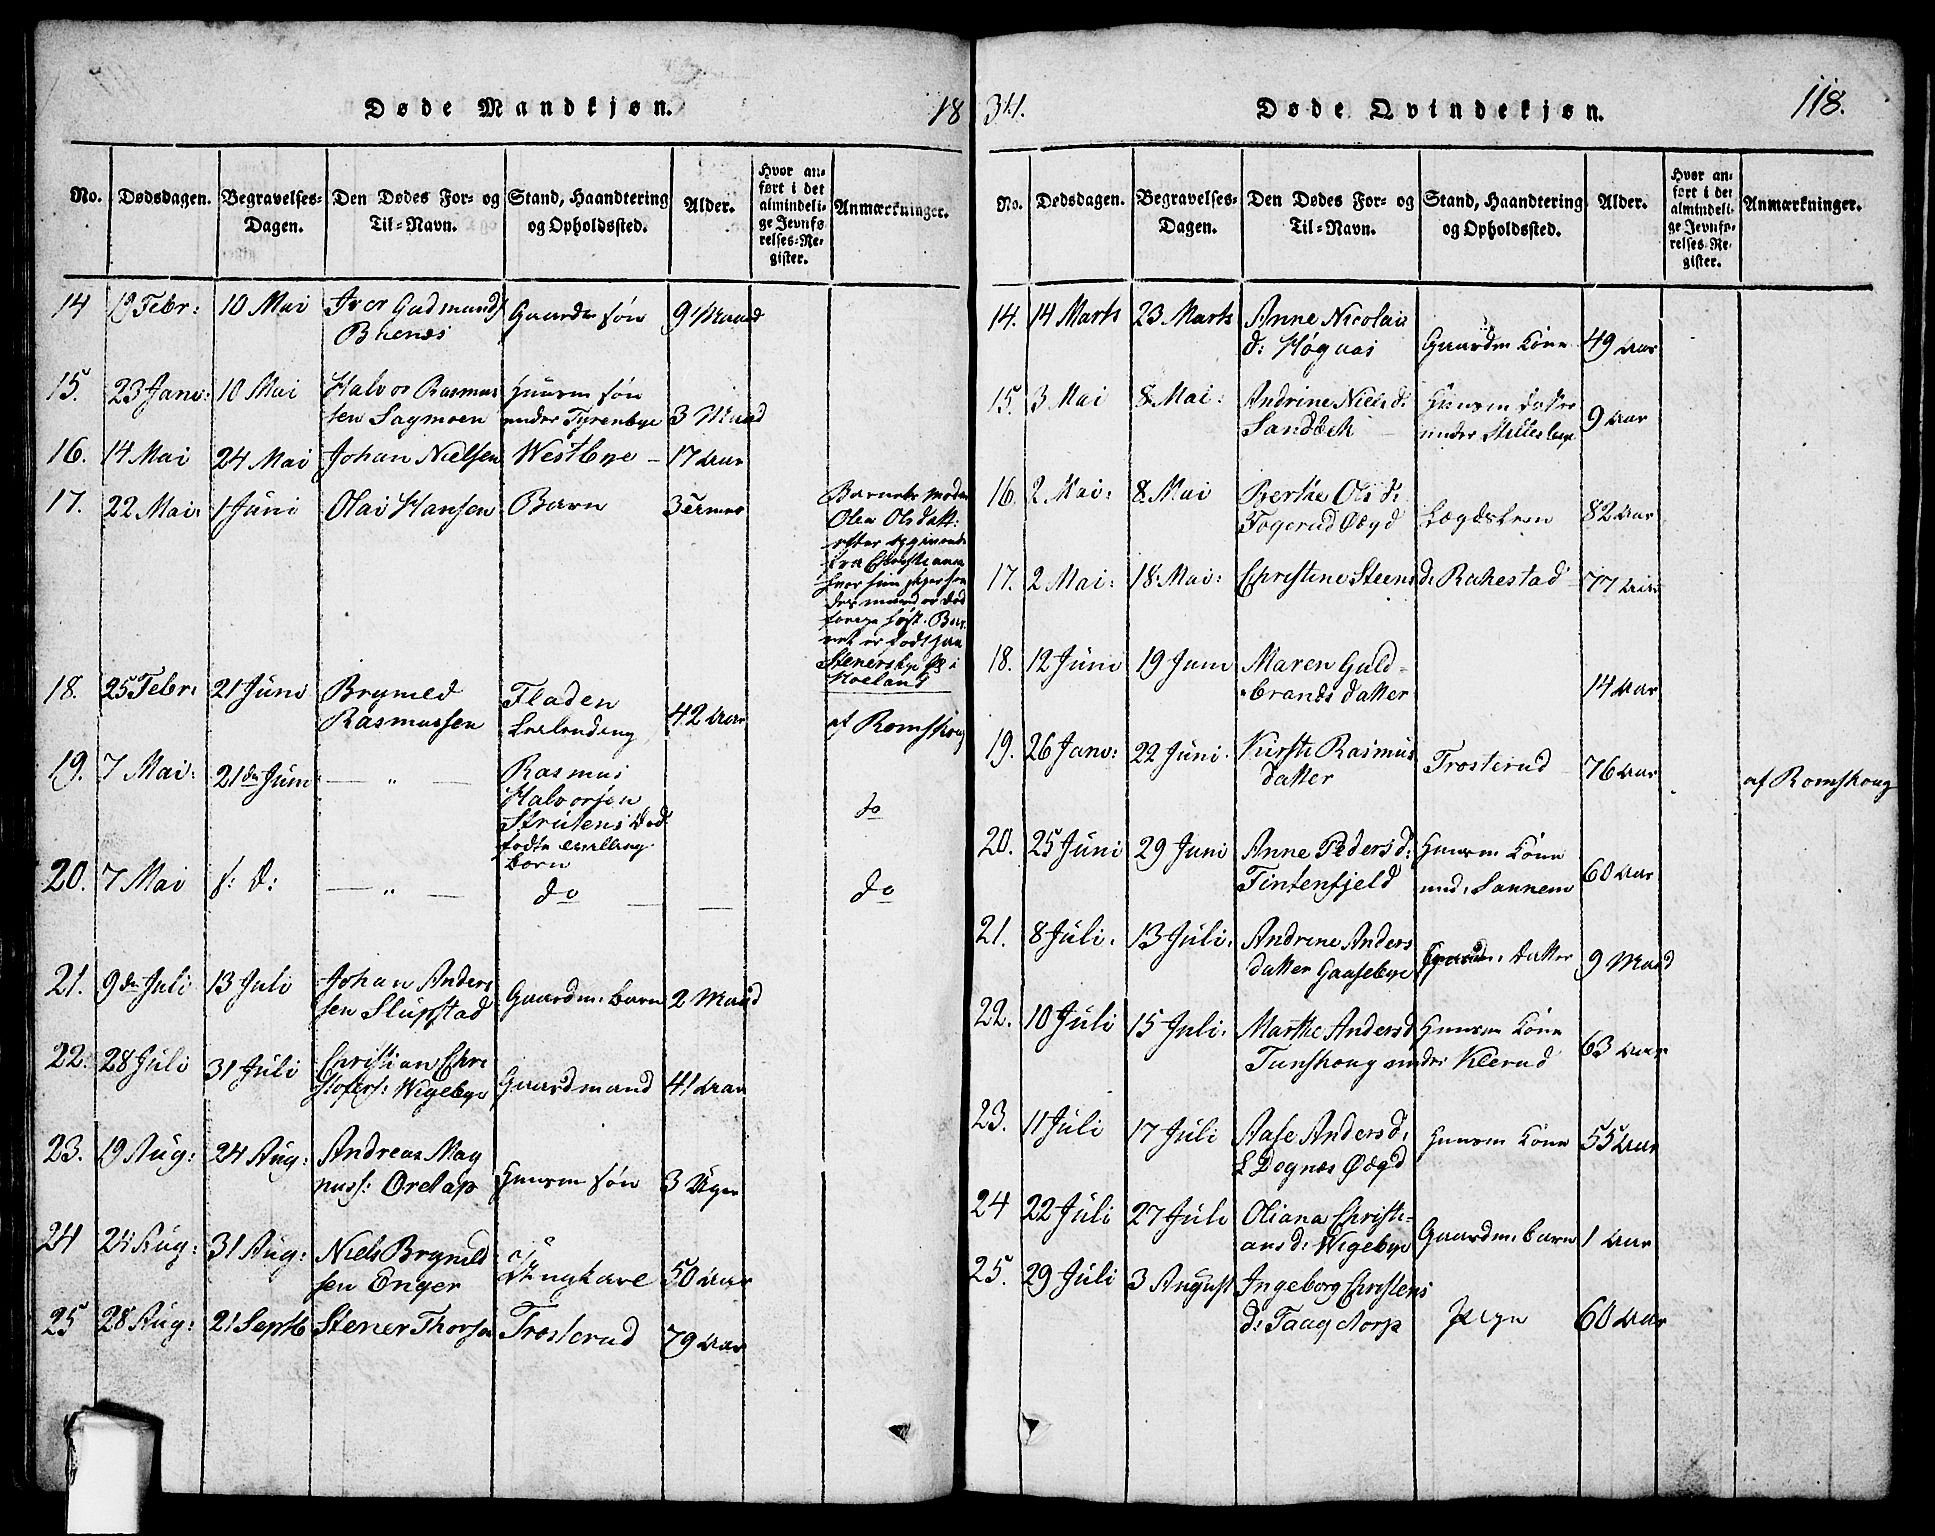 Døde Mandkjøn.
18
No.
Dødsdagen.
Begravelses-
Dagen.
Den Dødes For- og
Til-Navn.
Stand, Haandtering
og Opholdssted.
Alder.
Hvor an-
ført i det
almindeli-
ge Jevnfø-
relses-Re-
gister.
Anmærkninger.
14 19 Febr: 10 Mai Iver Gudmunds
Buenæs
Gaardm søn 9 Maand
15. 23 Janv: 10 Mai Halvor Rasmus
sen Sagmoen
Huusm søn
under Tyrenbye 3 Maand
16. 14 Mai 24 Mai Johan Nielsen Westbye – 17 Aar
17. 22 Mai: 1 Juni Olai Hansen Barn
Barnets Moder
Olea Olsdatt:
efter opgivende
fra Christiania
hvor hun siger hen
des mand er død
forrige høst. Bar-
net er født paa
Stenersbye
18. 25 Febr: 21 Juni Brynild
Rasmussen
Fladen
42 Aar
af Romskoug
19. 7 Mai: 21de Juni — „ —
Rasmus
Halvorsen
Strutens Død
fødte Tvilling
børn
do
20. 7 Mai s: d: — „ — do — — do
21. 9de Juli 13 Juli Johan Anders
sen Slupstad
Gaardm: barn 2 Maand
22. 28 Juli 31 Juli Christian Chri
stofers: Wigebye
Gaardmand 41 Aar
23. 19 Aug: 24 Aug: Andreas Mag
nuss: Oretap
Huusm søn 3 Uger
24 24 Aug: 31 Aug: Niels Brynild
sen Enger
50 Aar
25 28 Aug: 21 Septb Stener Thorsen Trosterud 79 Aar
34.
Døde Qvindekjøn.
118.
No.
Dødsdagen.
Begravelses-
Dagen.
Den Dødes For- og
Til-Navn.
Stand, Haandtering
og Opholdssted.
Alder.
Hvor an-
ført i det
almindeli-
ge Jevnfø-
relses-Re-
gister.
Anmærkninger.
14. 14 Marts 23 Marts Anne Nicolai
d: Høgaas
Gaardm Kone 49 Aar
15. 3 Mai 8 Mai: Andrine Niels d:
Sandbæk –
Huusm datter
under Stillesbye 9 Aar
16. 2 Mai: 8 Mai Berthe Ols d:
Togerud Øegd
Lægdslem 82 Aar
17. 2 Mai: 18 Mai: Christine Steens d: Rakestad 77 Aar
18. 12 Juni 19 Juni Maren Guld-
brands datter
14 Aar
19. 26 Janv: 22 Juni: Kirsti Rasmus
datter
Trosterud 76 Aar
af Romskoug
20. 25 Juni 29 Juni Anne Peders d:
Tintenfjeld
Huusm Kone
und: Sannem 60 Aar
21. 8 Juli: 13 Juli: Andrine Anders
datter Gaasebye
datter 9 Maad
22. 10 Juli 15 Juli: Marthe Andersd
Tunskoug
Huusm Kone
under Klerud 63 Aar
23. 11 Juli 17 Juli Aase Anders d:
Huusm Kone 55 Aar
24 22 Juli 27 Juli Oliana Christi-
ans d: Wigebye
Gaardm: barn 1 Aar
25. 29 Juli 3 August Ingeborg Christens
d: Taagtorp
Pige 60 Aar